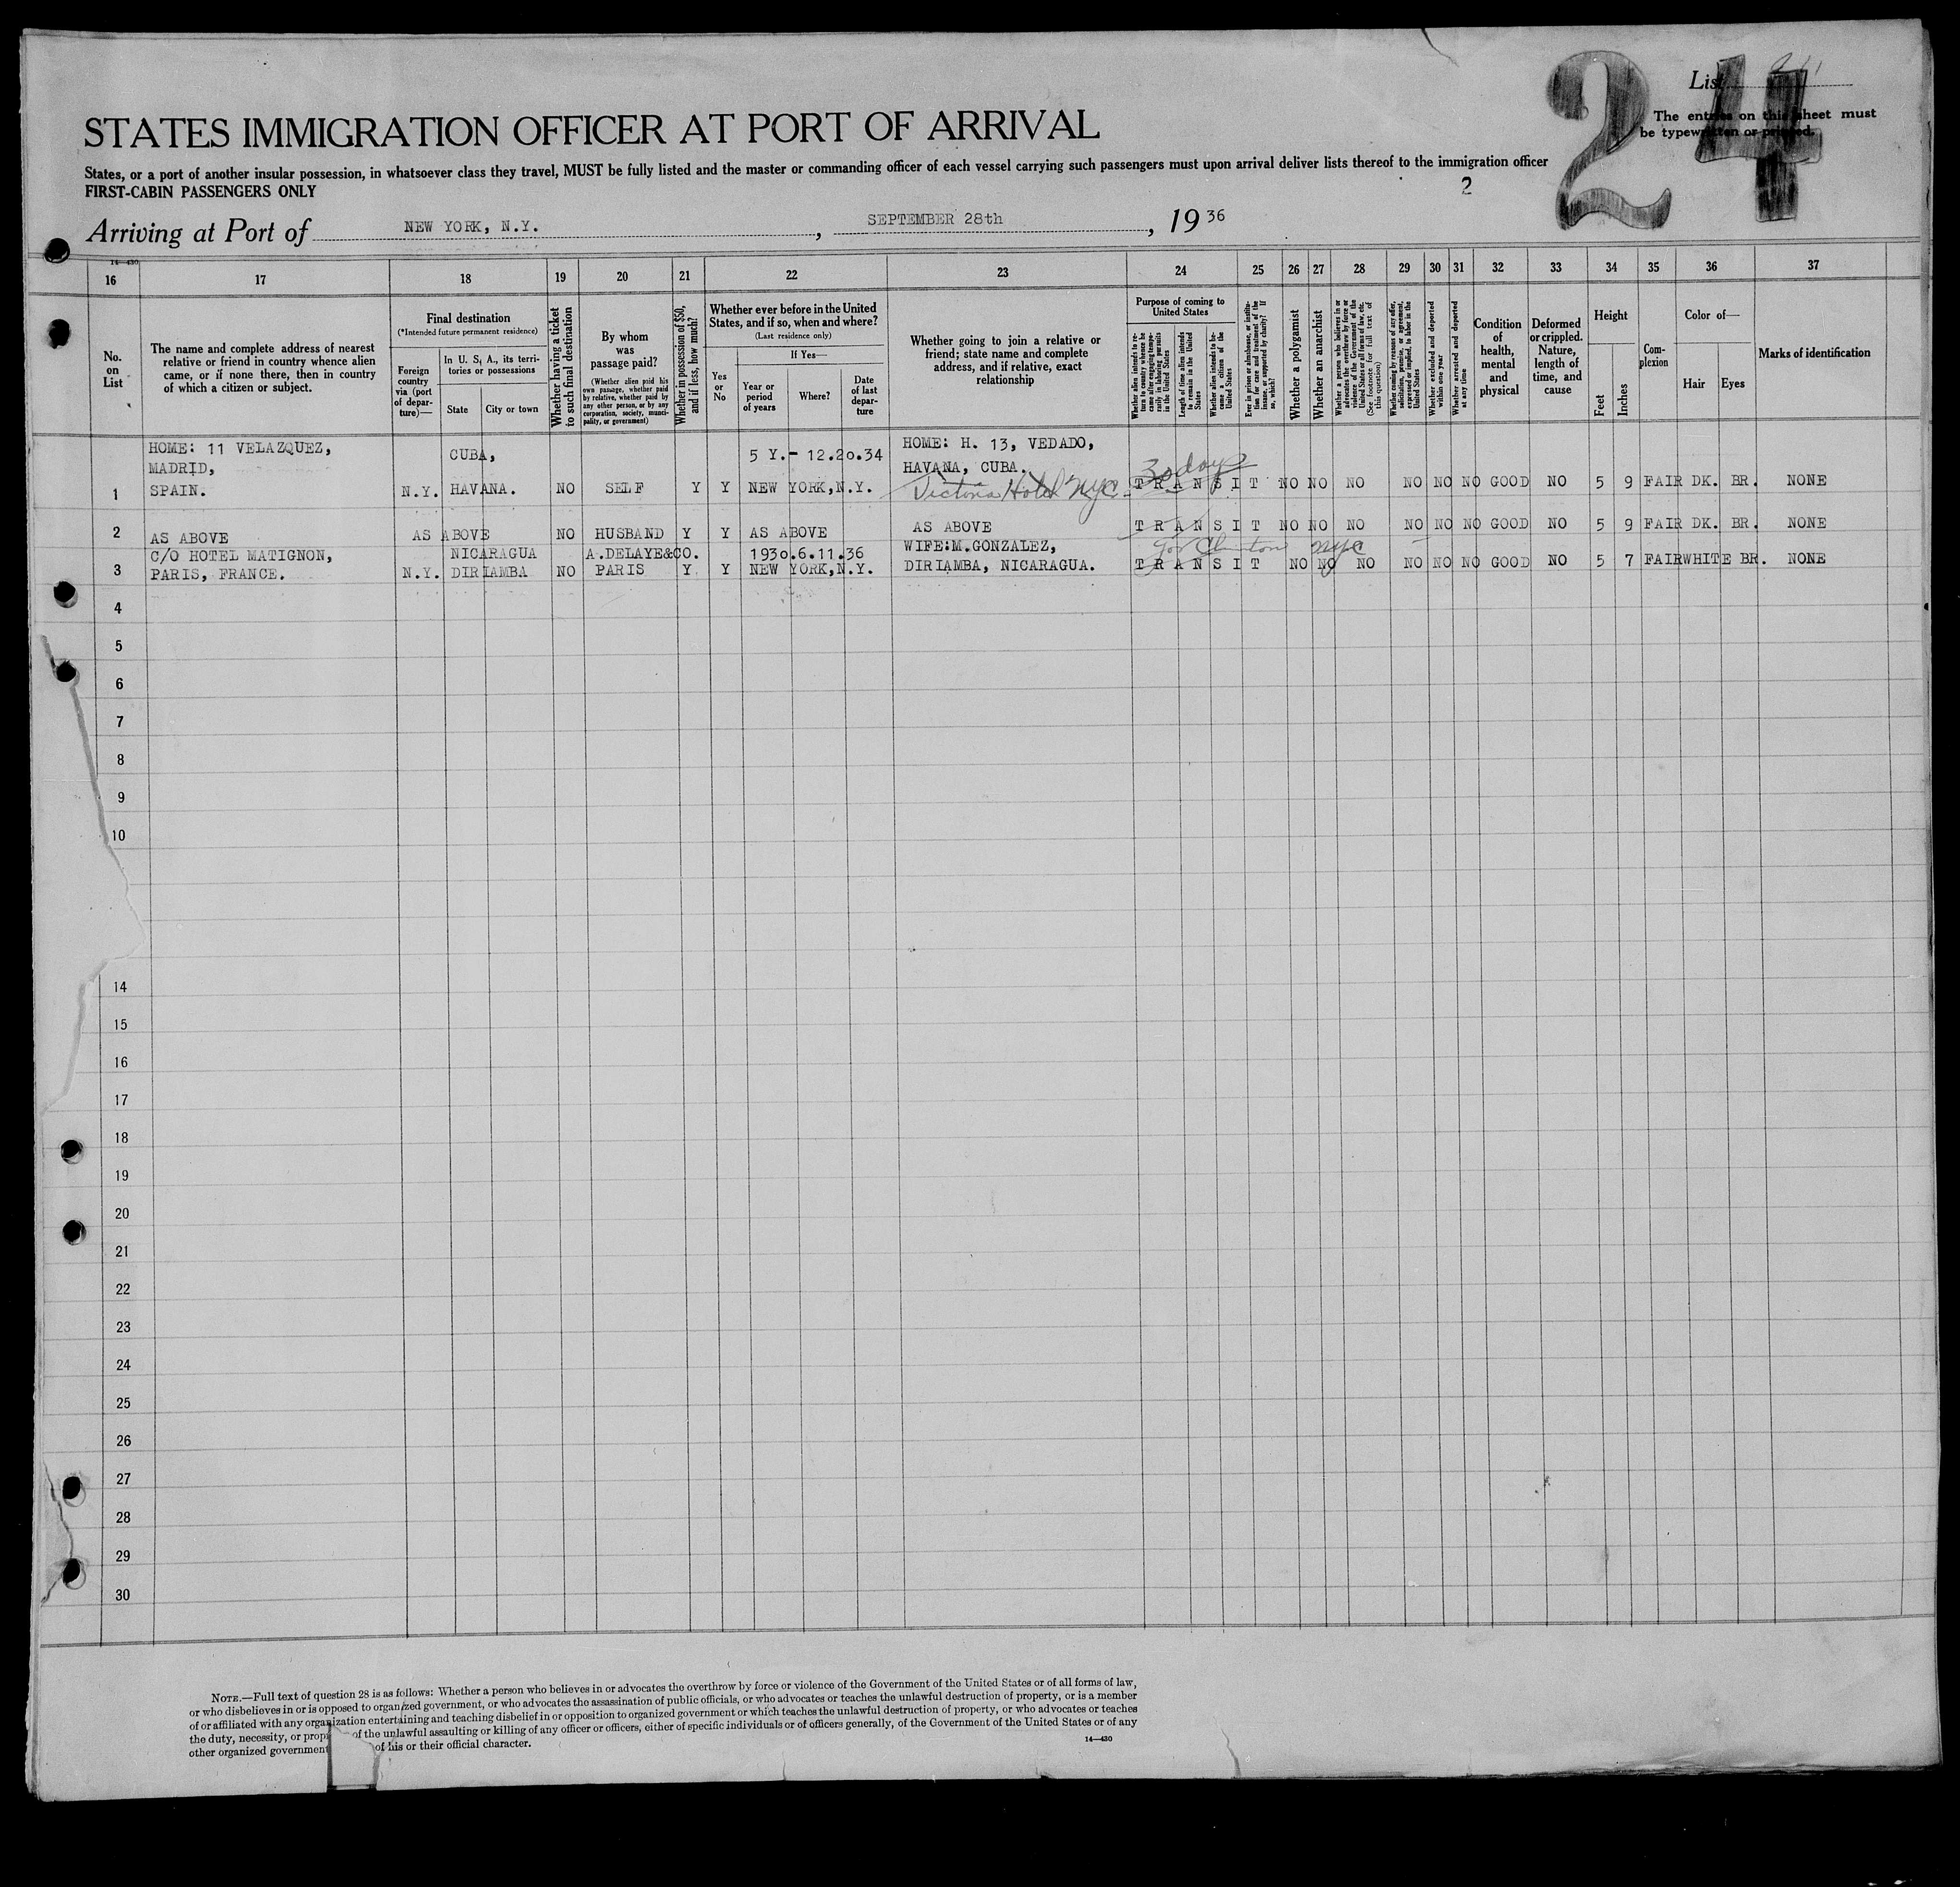 24
List
The entries on this sheet must
be typewritten or printed.
STATES IMMIGRATION OFFICER AT PORT OF ARRIVAL
States, or a port of another insular possession, in whatsoever class they travel, MUST be fully listed and the master or commanding officer of each vessel carrying such passengers must upon arrival deliver lists thereof to the immigration officer
FIRST-CABIN PASSENGERS ONLY
2
Arriving at Port of NEW YORK, N.Y. , SEPTEMBER 28th , 1936
14—430
16 17 18 19 20 21 22 23 24 25 26 27 28 29 30 31 32 33 34 35 36 37
No. on List
The name and complete address of nearest relative or friend in country whence alien came, or if none there, then in country of which a citizen or subject.
Final destination
(*Intended future permanent residence)
Foreign country via (port of departure)—
In U. S. A., its territories or possessions
State
City or town
Whether having a ticket to such final destination
By whom was passage paid?
(Whether alien paid his own passage, whether paid by relative, whether paid by any other person, or by any corporation, society, municipality, or government)
Whether in possession of $50, and if less, how much?
Whether ever before in the United States, and if so, when and where?
(Last residence only)
Yes or No
If Yes—
Year or period of years
Where?
Date of last departure
Whether going to join a relative or friend; state name and complete address, and if relative, exact relationship
Purpose of coming to United States
Whether alien intends to return to country whence he came after engaging temporarily in laboring pursuits in the United States
Length of time alien intends to remain in the United States
Whether alien intends to become a citizen of the United States
Ever in prison or almshouse, or institution for care and treatment of the insane, or supported by charity? If so, which?
Whether a polygamist
Whether an anarchist
Whether a person who believes in or advocates the overthrow by force or violence of the Government of the United States or all forms of law, etc. (See footnote for full text of this question)
Whether coming by reasons of any offer, solicitation, promise, or agreement, expressed or implied, to labor in the United States
Whether excluded and deported within one year
Whether arrested and deported at any time
Condition of health, mental and physical
Deformed or crippled. Nature, length of time, and cause
Height
Feet
Inches
Complexion
Color of—
Hair
Eyes
Marks of identification
HOME: 11 VELAZQUEZ, CUBA, 5 Y.- 12.20.34 HOME: H. 13, VEDADO,
MADRID, HAVANA, CUBA. 30 days
1 SPAIN. N.Y. HAVANA. NO SELF Y Y NEW YORK,N.Y. Victoria Hotel NYC TRANSIT NO NO NO NO NO NO GOOD NO 5 9 FAIR DK. BR. NONE
2 AS ABOVE AS ABOVE NO HUSBAND Y Y AS ABOVE AS ABOVE TRANSIT NO NO NO NO NO NO GOOD NO 5 9 FAIR DK. BR. NONE
C/O HOTEL MATIGNON, NICARAGUA A.DELAYE&CO. 1930.6.11.36 WIFE:M.GONZALEZ, Gov Clinton NYC
3 PARIS, FRANCE. N.Y. DIRIAMBA NO PARIS Y Y NEW YORK,N.Y. DIRIAMBA, NICARAGUA. TRANSIT NO NO NO NO NO NO GOOD NO 5 7 FAIR WHITE BR. NONE
4
5
6
7
8
9
10
14
15
16
17
18
19
20
21
22
23
24
25
26
27
28
29
30
NOTE.—Full text of question 28 is as follows: Whether a person who believes in or advocates the overthrow by force or violence of the Government of the United States or of all forms of law,
or who disbelieves in or is opposed to organized government, or who advocates the assassination of public officials, or who advocates or teaches the unlawful destruction of property, or is a member
of or affiliated with any organization entertaining and teaching disbelief in or opposition to organized government or which teaches the unlawful destruction of property, or who advocates or teaches
the duty, necessity, or prop of the unlawful assaulting or killing of any officer or officers, either of specific individuals or of officers generally, of the Government of the United States or of any
other organized government of his or their official character.
14—430